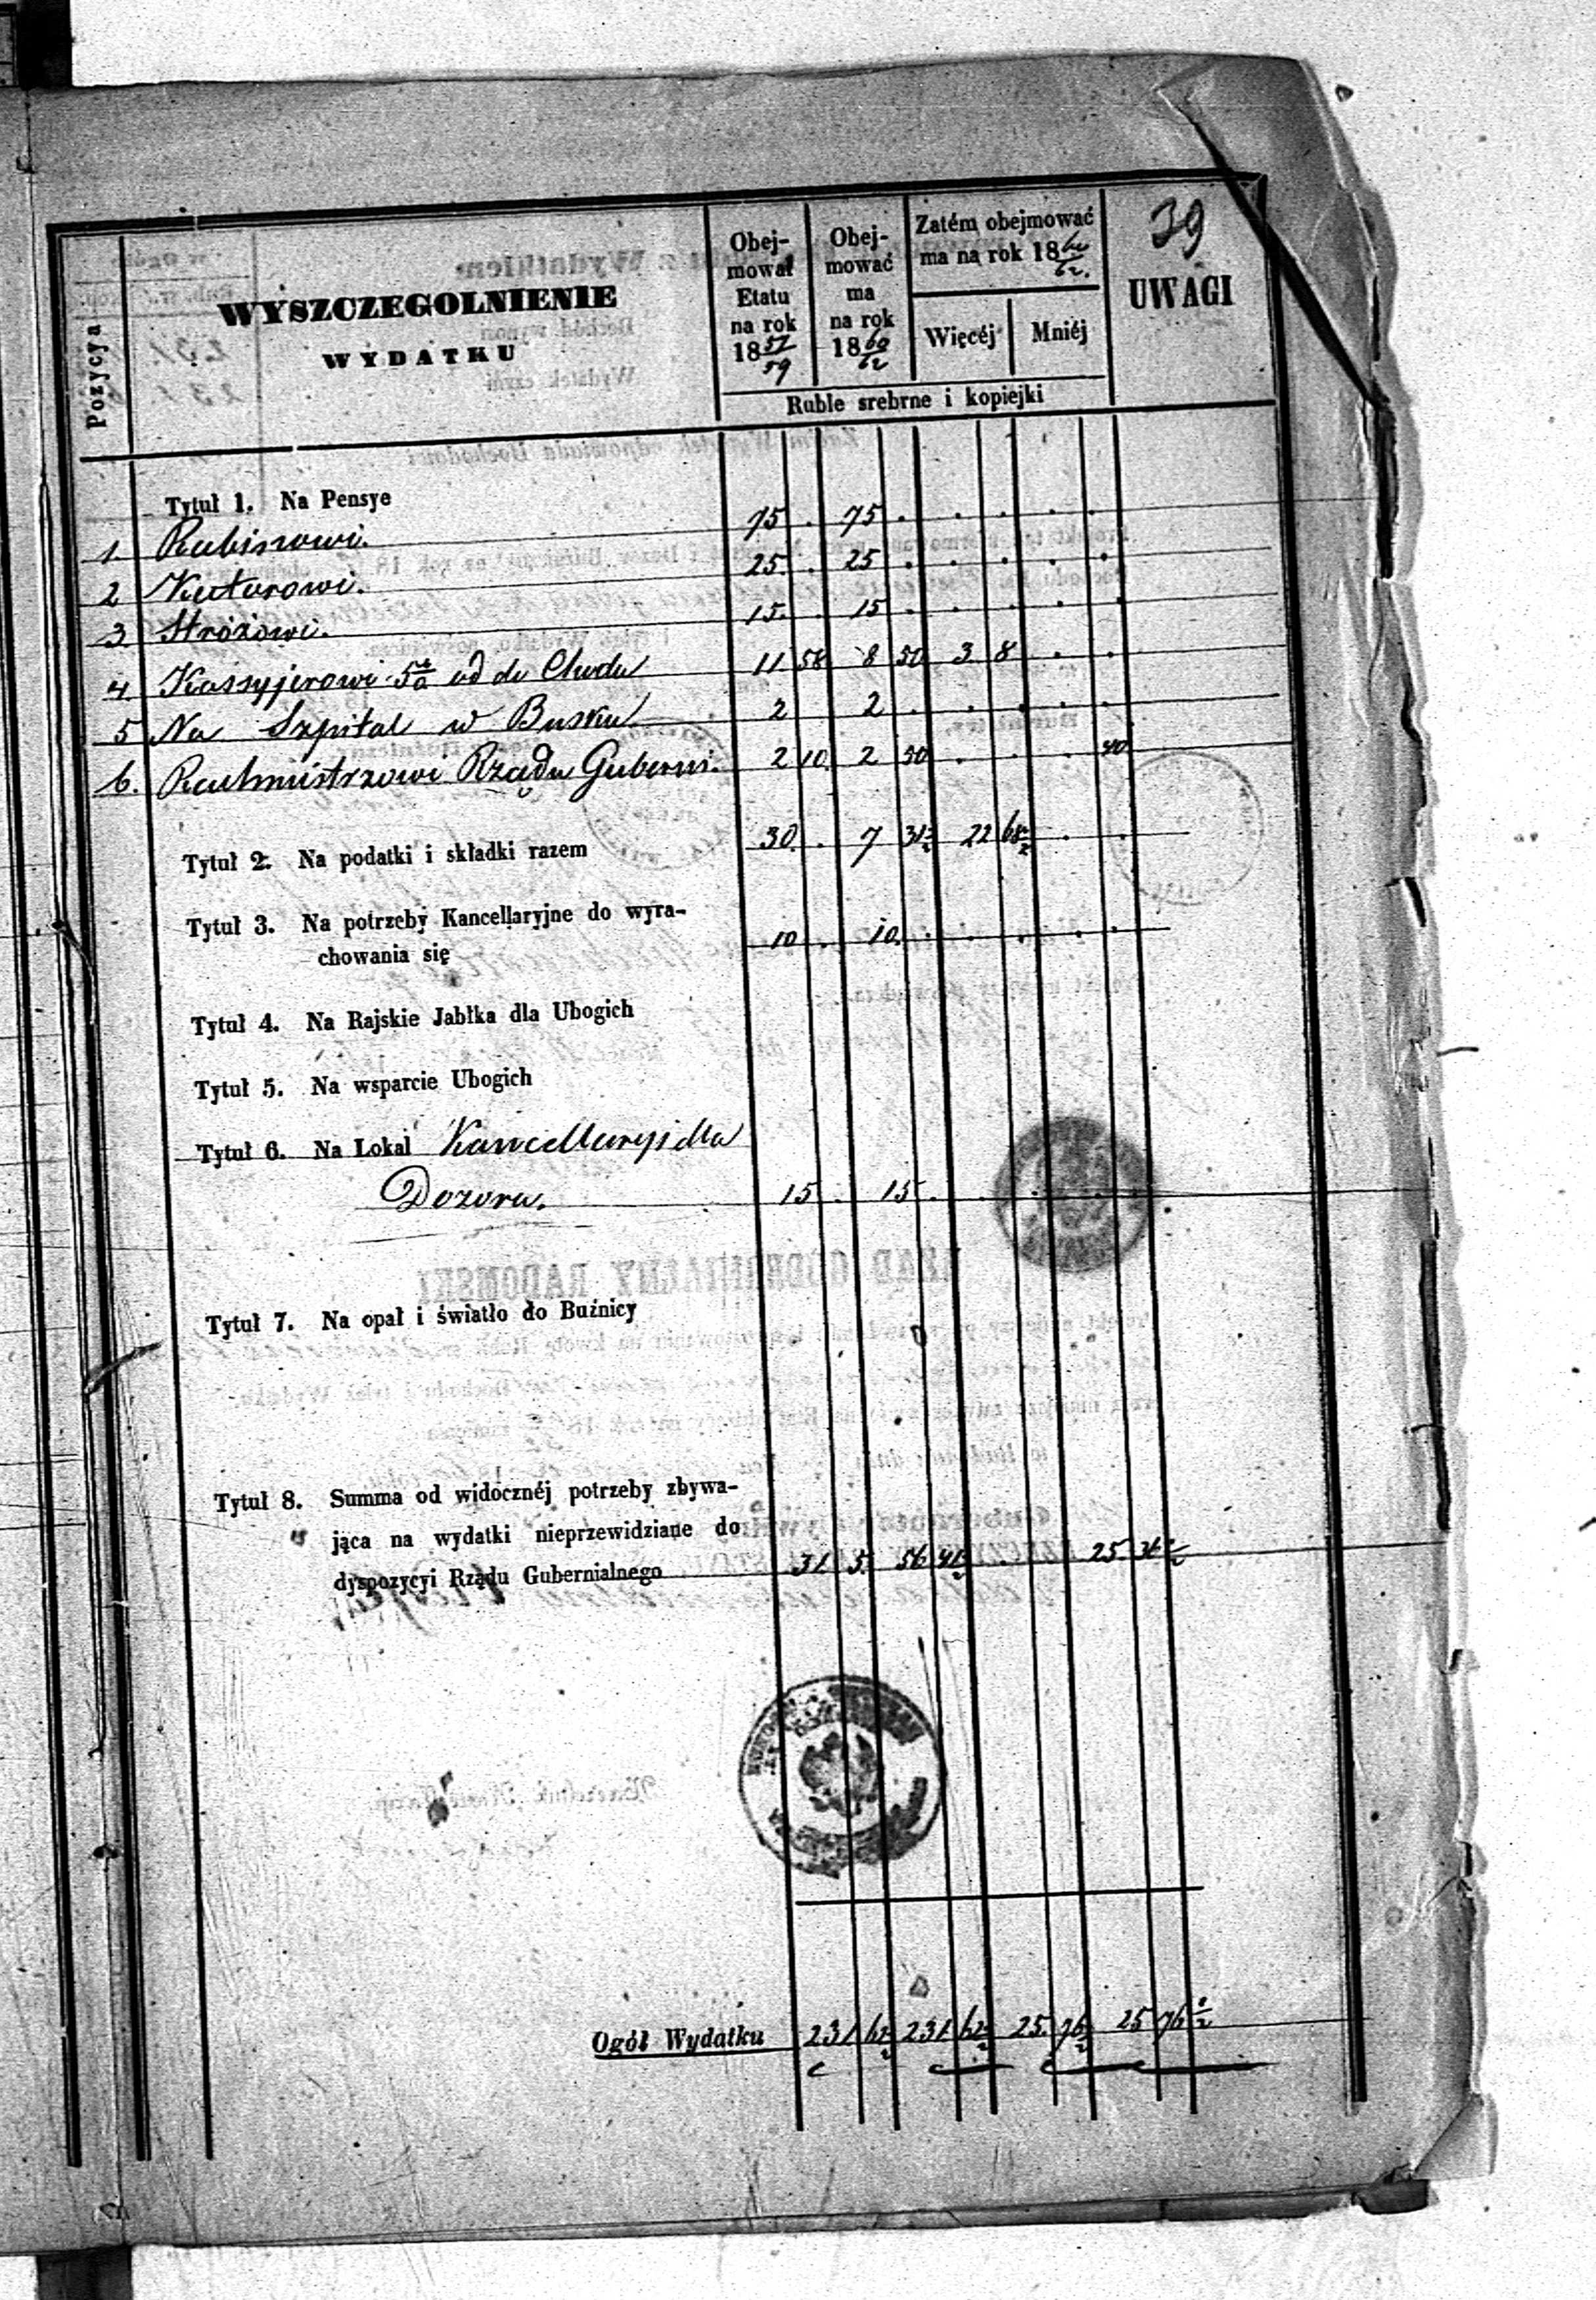 39
Pozycya
WYSZCZEGOLNIENIE
WYDATKU
Obej-
mował
Etatu
na rok
18 57/59
Obej-
mować
ma
na rok
18 60/62
Zatém obejmować
ma na rok 18 60/62.
Więcéj
Mniéj
UWAGI
Ruble srebrne i kopiejki
Tytuł 1. Na Pensye
1 Rabinowi. 75 . 75 . . . . .
2 Kantorowi. 25 . 25 . . . . .
3 Stróżowi. 15 . 15 . . . . .
4 Kassyjerowi 5% od do Chodu 11 58 8 50 3 8 . .
5 Na Szpital w Busku 2 2 . . . . .
6. Rachmistrzowi Rządu Guberni. 2 10 2 50 . . . 40
Tytuł 2. Na podatki i składki razem 30 . 7 31½ 22 68½ . .
Tytuł 3. Na potrzeby Kancellaryjne do wyra-
chowania się 10 . 10 . . . . .
Tytuł 4. Na Rajskie Jabłka dla Ubogich
Tytuł 5. Na wsparcie Ubogich
Tytuł 6. Na Lokal Kancellaryi dla
Dozoru. 15 . 15 .
Tytuł 7. Na opał i światło do Buźnicy
Tytuł 8. Summa od widocznéj potrzeby zbywa-
jąca na wydatki nieprzewidziane do
dyspozycyi Rządu Gubernialnego 31 5 56 41½ 25 36½
Ogół Wydatku 231 62½ 231 62½ 25 76½ 25 76½